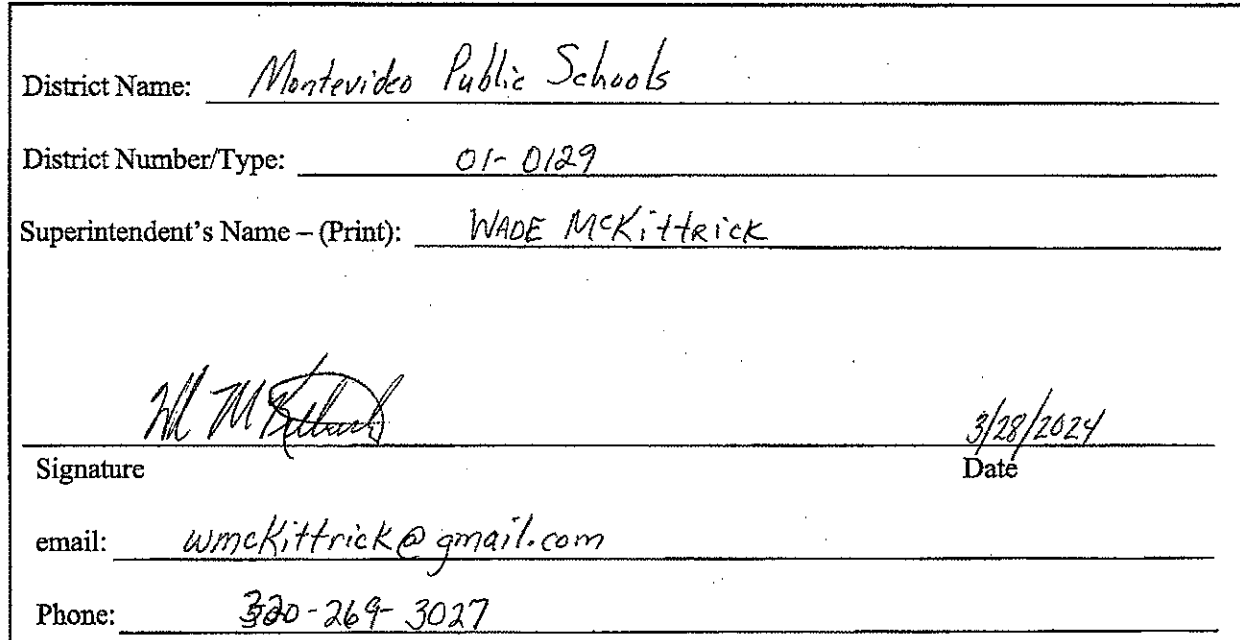 District Name: Montevideo Public Schools
District Number/Type: 01-0129
Superintendent's Name – (Print): WADE McKittRicK
3/28/2024
Signature Date
email: wmcKittrick@gmail.com
Phone: 320-269-3027